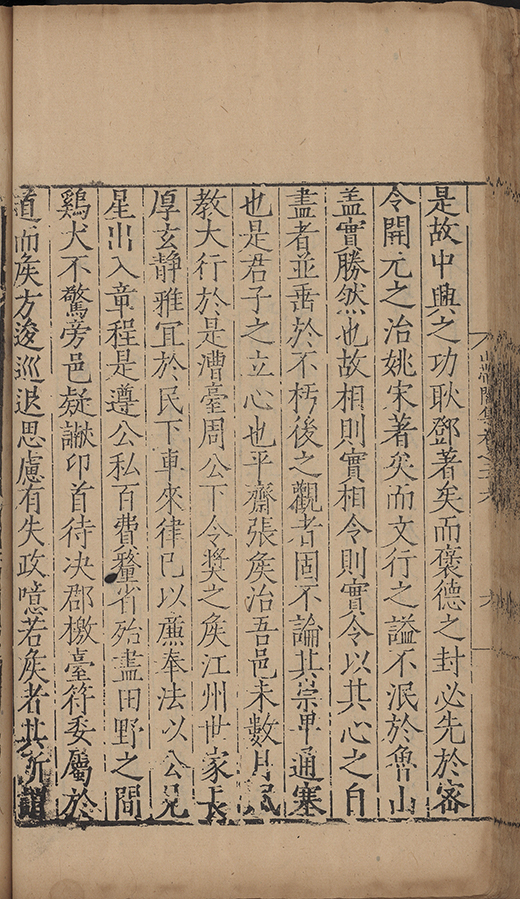 是故中興之功耿鄧著矣而褒德之封必先於密
令開元之治姚宋著矣而文行之謚不泯於魯山
盖實勝然也故相則實相令則實令以其心之自
盡者並垂於不朽後之觀者固不論其崇卑通塞
也是君子之立心也平齋張矦治吾邑未數月民
教大行於是漕臺周公下令奬之矦江州世家長
厚玄静雅冝於民下車來律己以亷奉法以公見
星出入章程是遵公私百費釐省殆盡田野之間
鷄犬不驚旁邑疑讞卬首待决郡檄臺符委屬於
道而矦方逡巡退思慮有失政噫若矦者其所謂